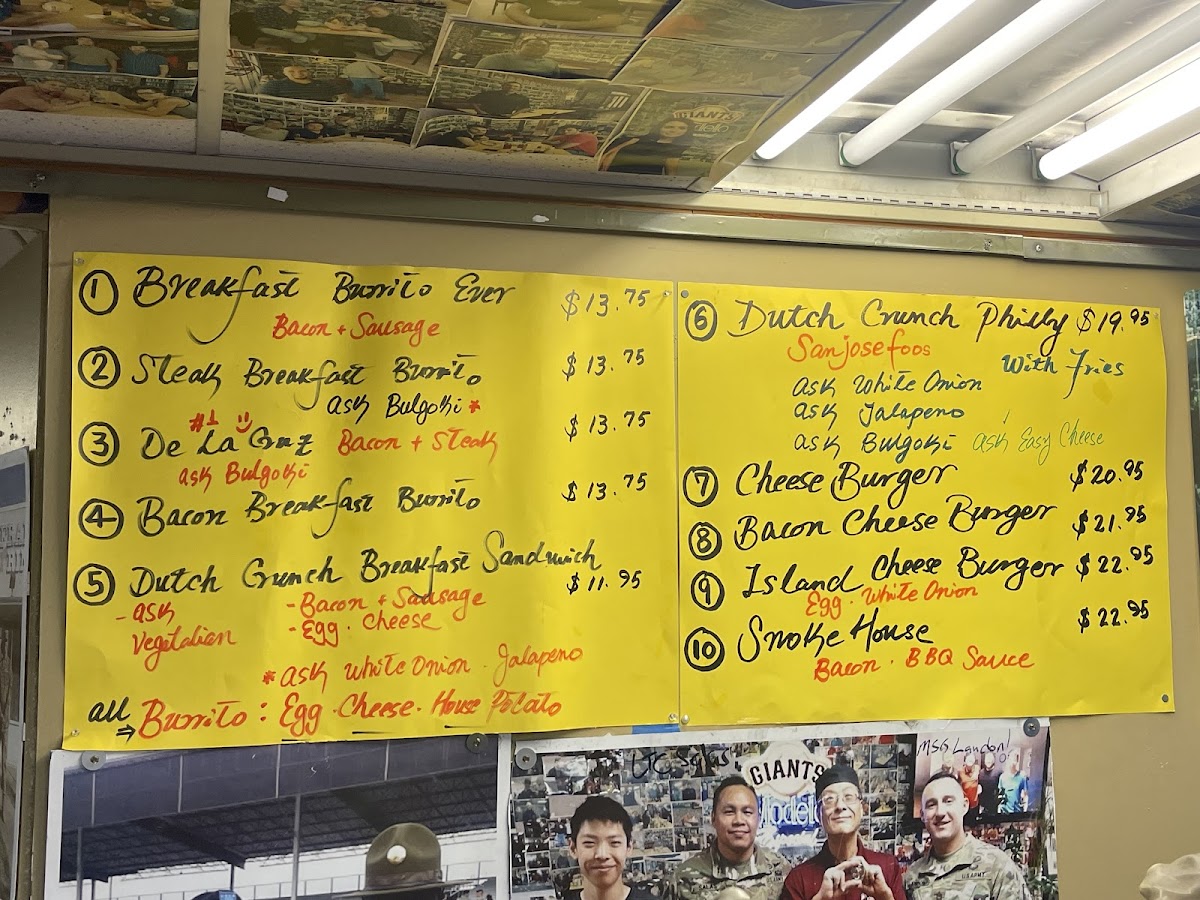 ① Breakfast Burrito Ever $13.75
Bacon + Sausage
② Steak Breakfast Burrito $13.75
ask Bulgoki *
#1
③ De La Cruz Bacon + Steak $13.75
ask Bulgoki
④ Bacon Breakfast Burrito $13.75
⑤ Dutch Crunch Breakfast Sandwich
$11.95
- ask
Vegetalian
- Bacon + Sausage
- Egg . Cheese
* ask White Onion . Jalapeno
all ⇒ Burrito : Egg . Cheese . House Potato
⑥ Dutch Crunch Philly $19.95
Sanjosefoos
With Fries
ask White Onion
ask Jalapeno
ask Bulgoki ask Easy Cheese
⑦ Cheese Burger $20.95
⑧ Bacon Cheese Burger $21.95
⑨ Island Cheese Burger $22.95
Egg . White Onion
⑩ Smoke House $22.95
Bacon . BBQ Sauce
GIANTS
GIANTS
Modelo
MSG Landon!
U.S. ARMY